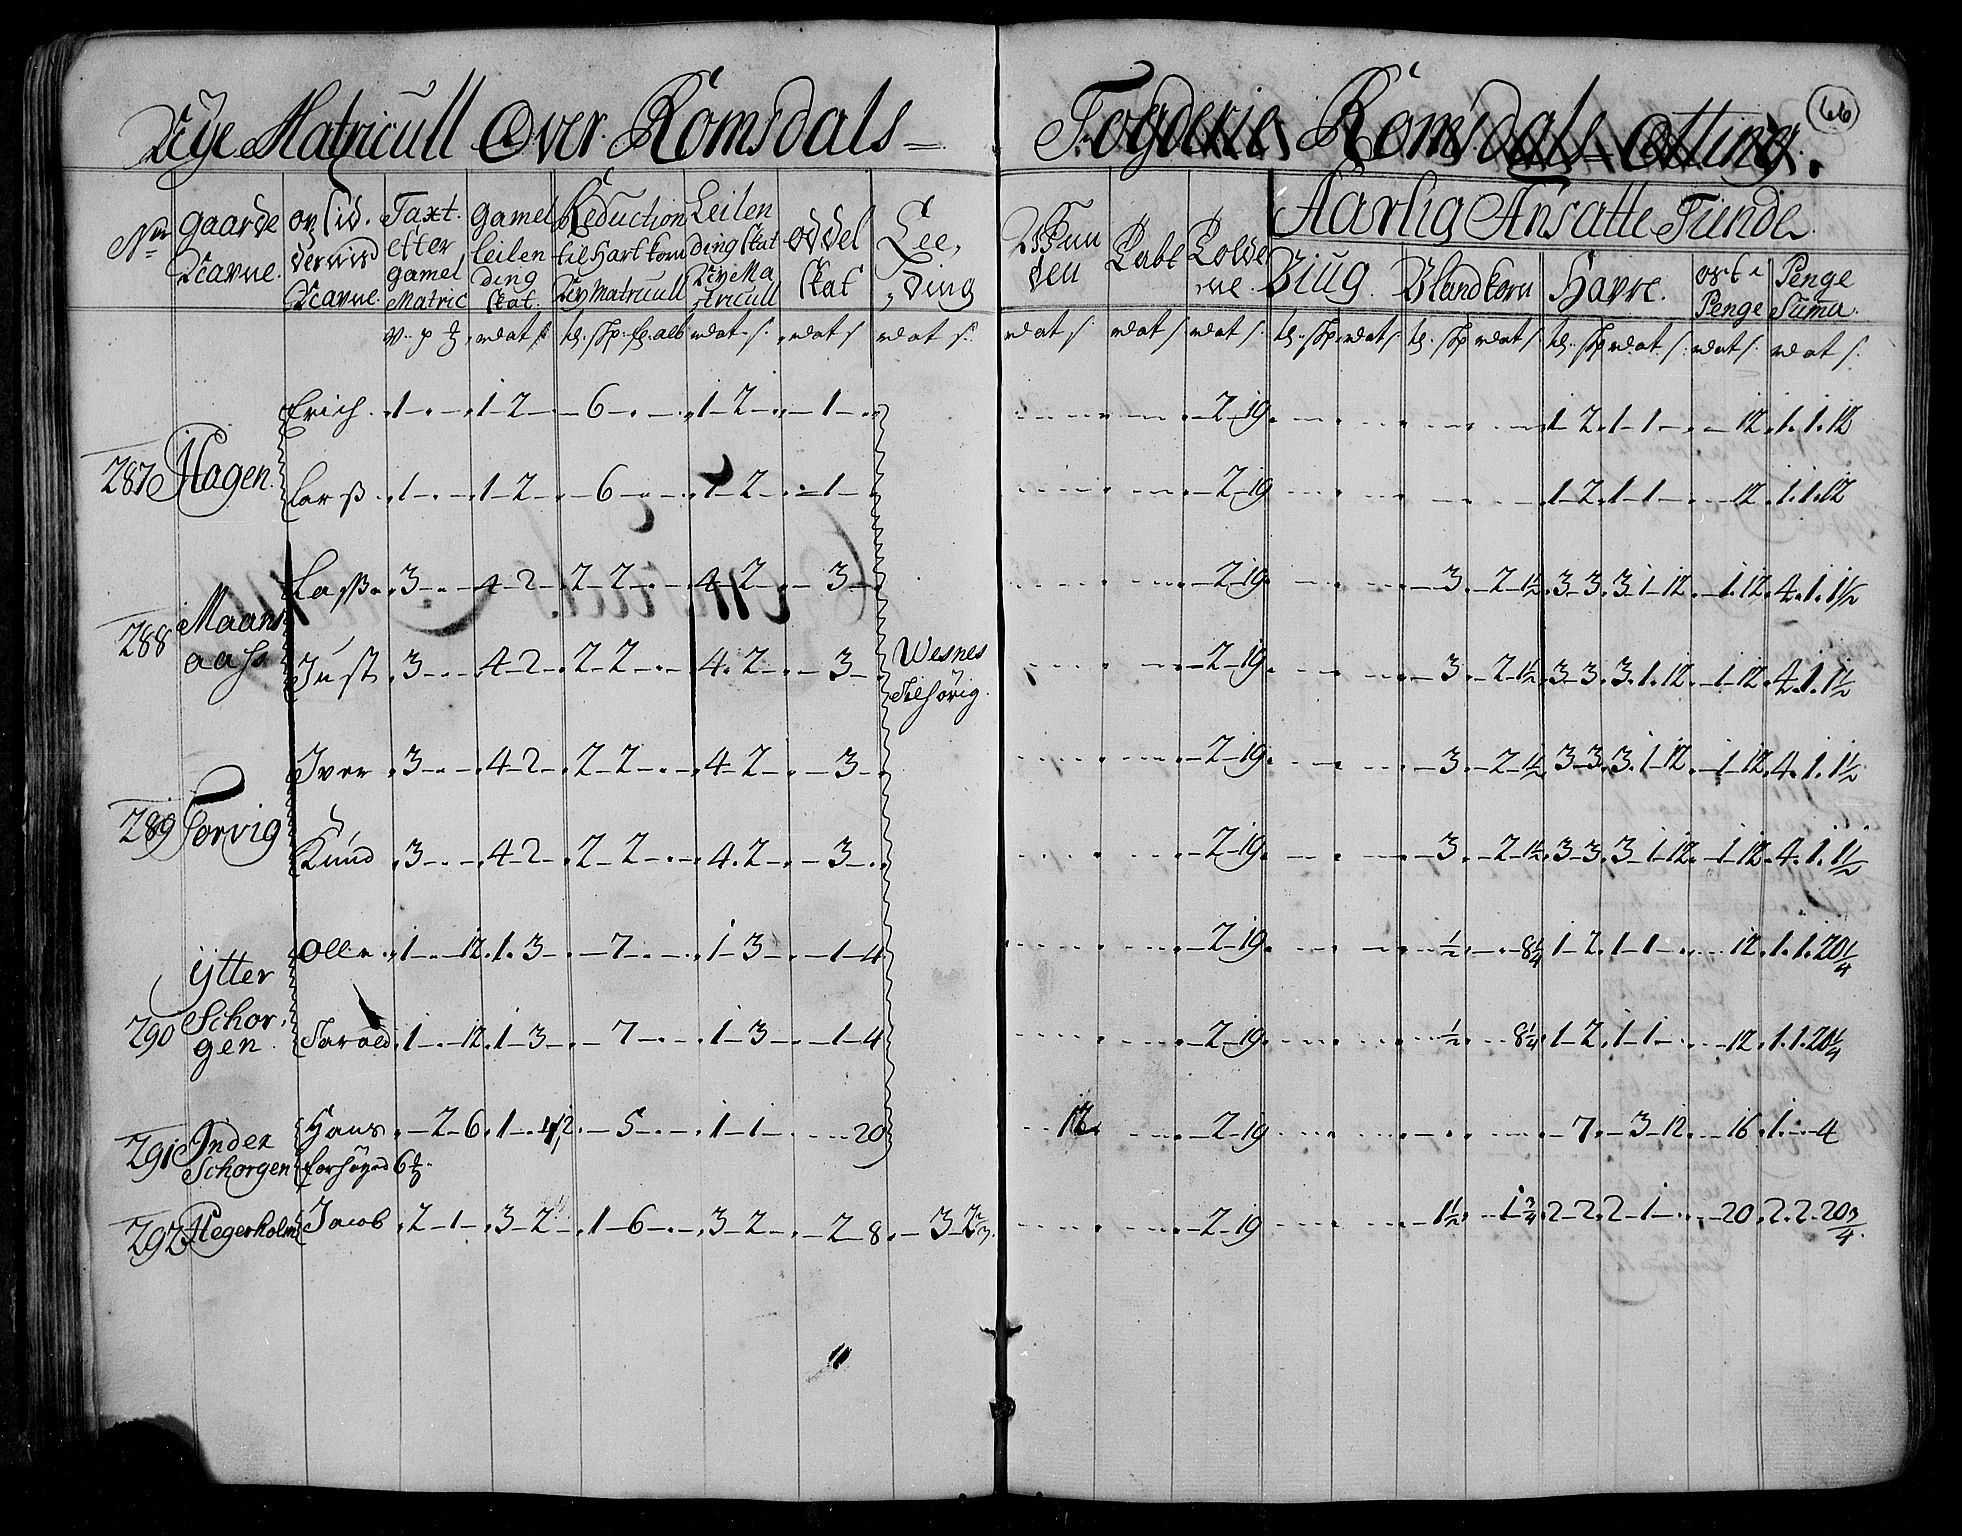 Nÿe Matricull Over Romsdals Fogderie Romsdals Otting.
66
No
gaarde Navne.
opsid. dernis Navne
Taxt. efter gamel Matric
gamel leilending skat.
Reduction til Hartkorn Nÿ Matricull
Leilending skat Nÿe Matricull
oddel skat
Lee, ding
Aarlig Ansatte Tiinde
Biug.
Blandkorn
Havre.
ost Penge
Penge Summa.
Erich 1 1-2 6 1-2 1 2-19 1 2 1-1 12 1.1.12
287 Hagen.
Larss 1 1-2 6 1-2 1 2-19 1 2 1-1 12 1.1.12
Lasse 3 4-2 2-2 4-2 3 2-19 3 2-1½ 3-3 3.1-12 1.12 4.1.1½
288 Maans aass
Just 3 4-2 2-2 4.2 3 2-19 3 2-1½ 3-3 3.1.12 1-12 4.1.1½
Wesnes Tilhörig.
Iver 3 4-2 2-2 4-2 3 2-19 3 2-1½ 3-3 3.1-12 1-12 4.1.1½
289 Torvig
Knud 3 4-2 2-2 4.2 3 2-19 3 2-1½ 3-3 3-1-12 1-12 4.1.1½
Olle 1 12 1.3 7 1-3 1-4 2-19 ½ 8¼ 1-2 1-1 12 1.1.20¼
290 Ÿtter Schorgen
Tarald 1 12 1-3 7 1-3 1-4 2-19 ½ 8¼ 1-2 1-1 12 1.1.20¼
291 Inder Schorgen
Hans 2-6 1 5 1-1 20 12 2-19 7 3-12 16 1-4
forhöÿed 6
292 Hegerholm Jacob 2-1 3-2 1-6 3-2 2-8 3-2⅔ 2-19 1½ 1¾ 2-2 2-1 20 2.2.20¾